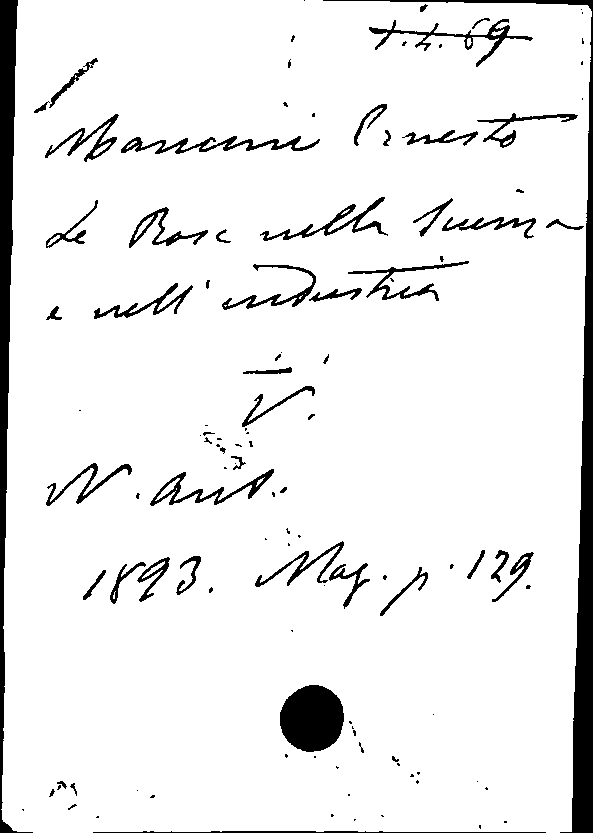 1.4.69
Mancini Ernesto
Le Rose nella Scienza
e nell'industria
V.
N. Ant.
1893. Mag. p. 129.